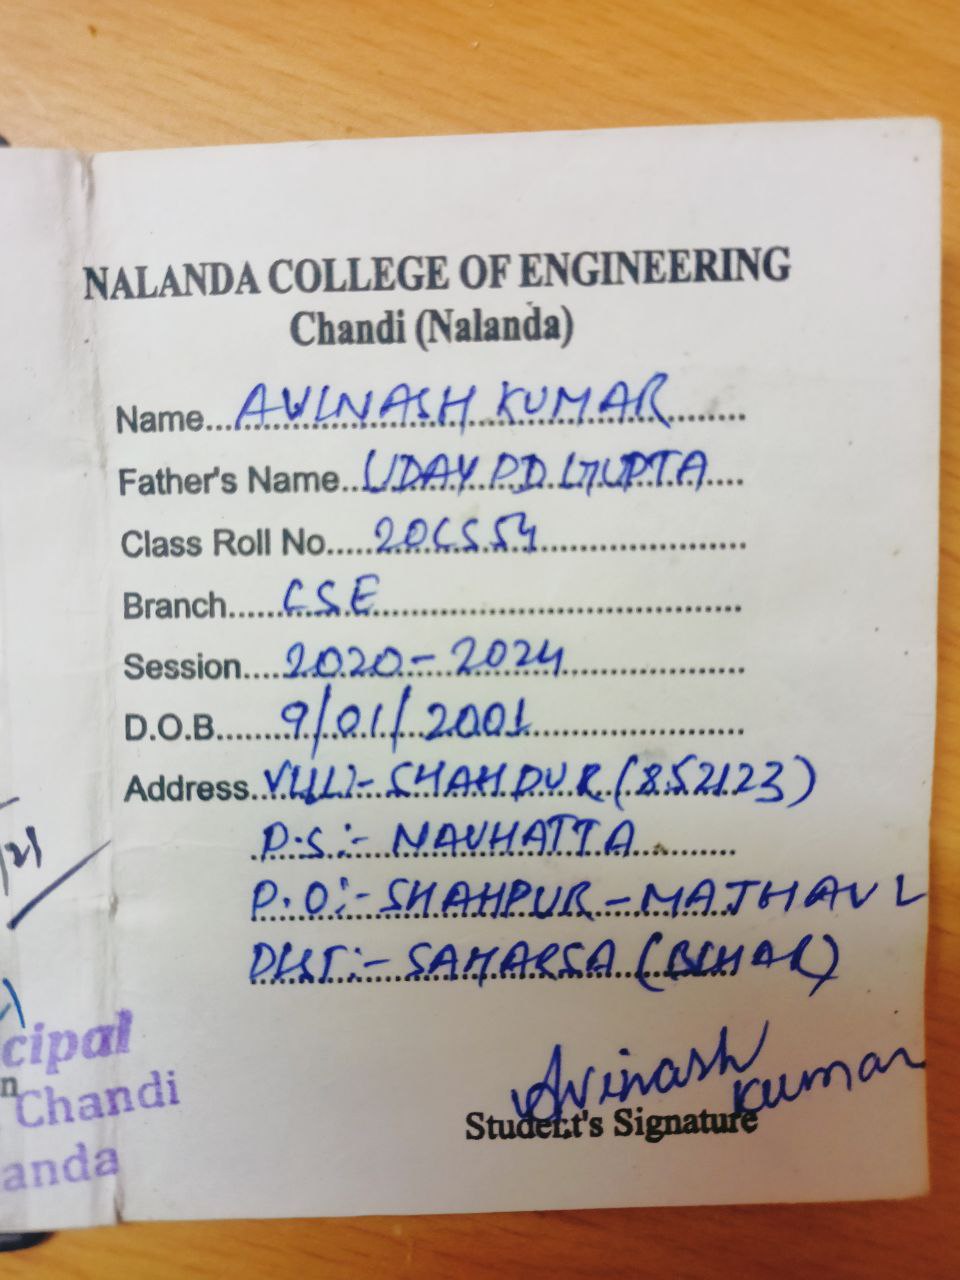 NALANDA COLLEGE OF ENGINEERING
Chandi (Nalanda)
Name...AVINASH KUMAR
Father's Name..UDAY PD GUPTA
Class Roll No.....20CS54
Branch......CSE
Session....2020-2024
D.O.B.......9/01/2001
Address..VILL:- SHAHPUR (852123)
P.S:- NAUHATTA
P.O:- SHAHPUR-MAJHAUL
DIST:- SAHARSA (BIHAR)
Avinash Kumar
Student's Signature
/21
cipal
n
Chandi
anda